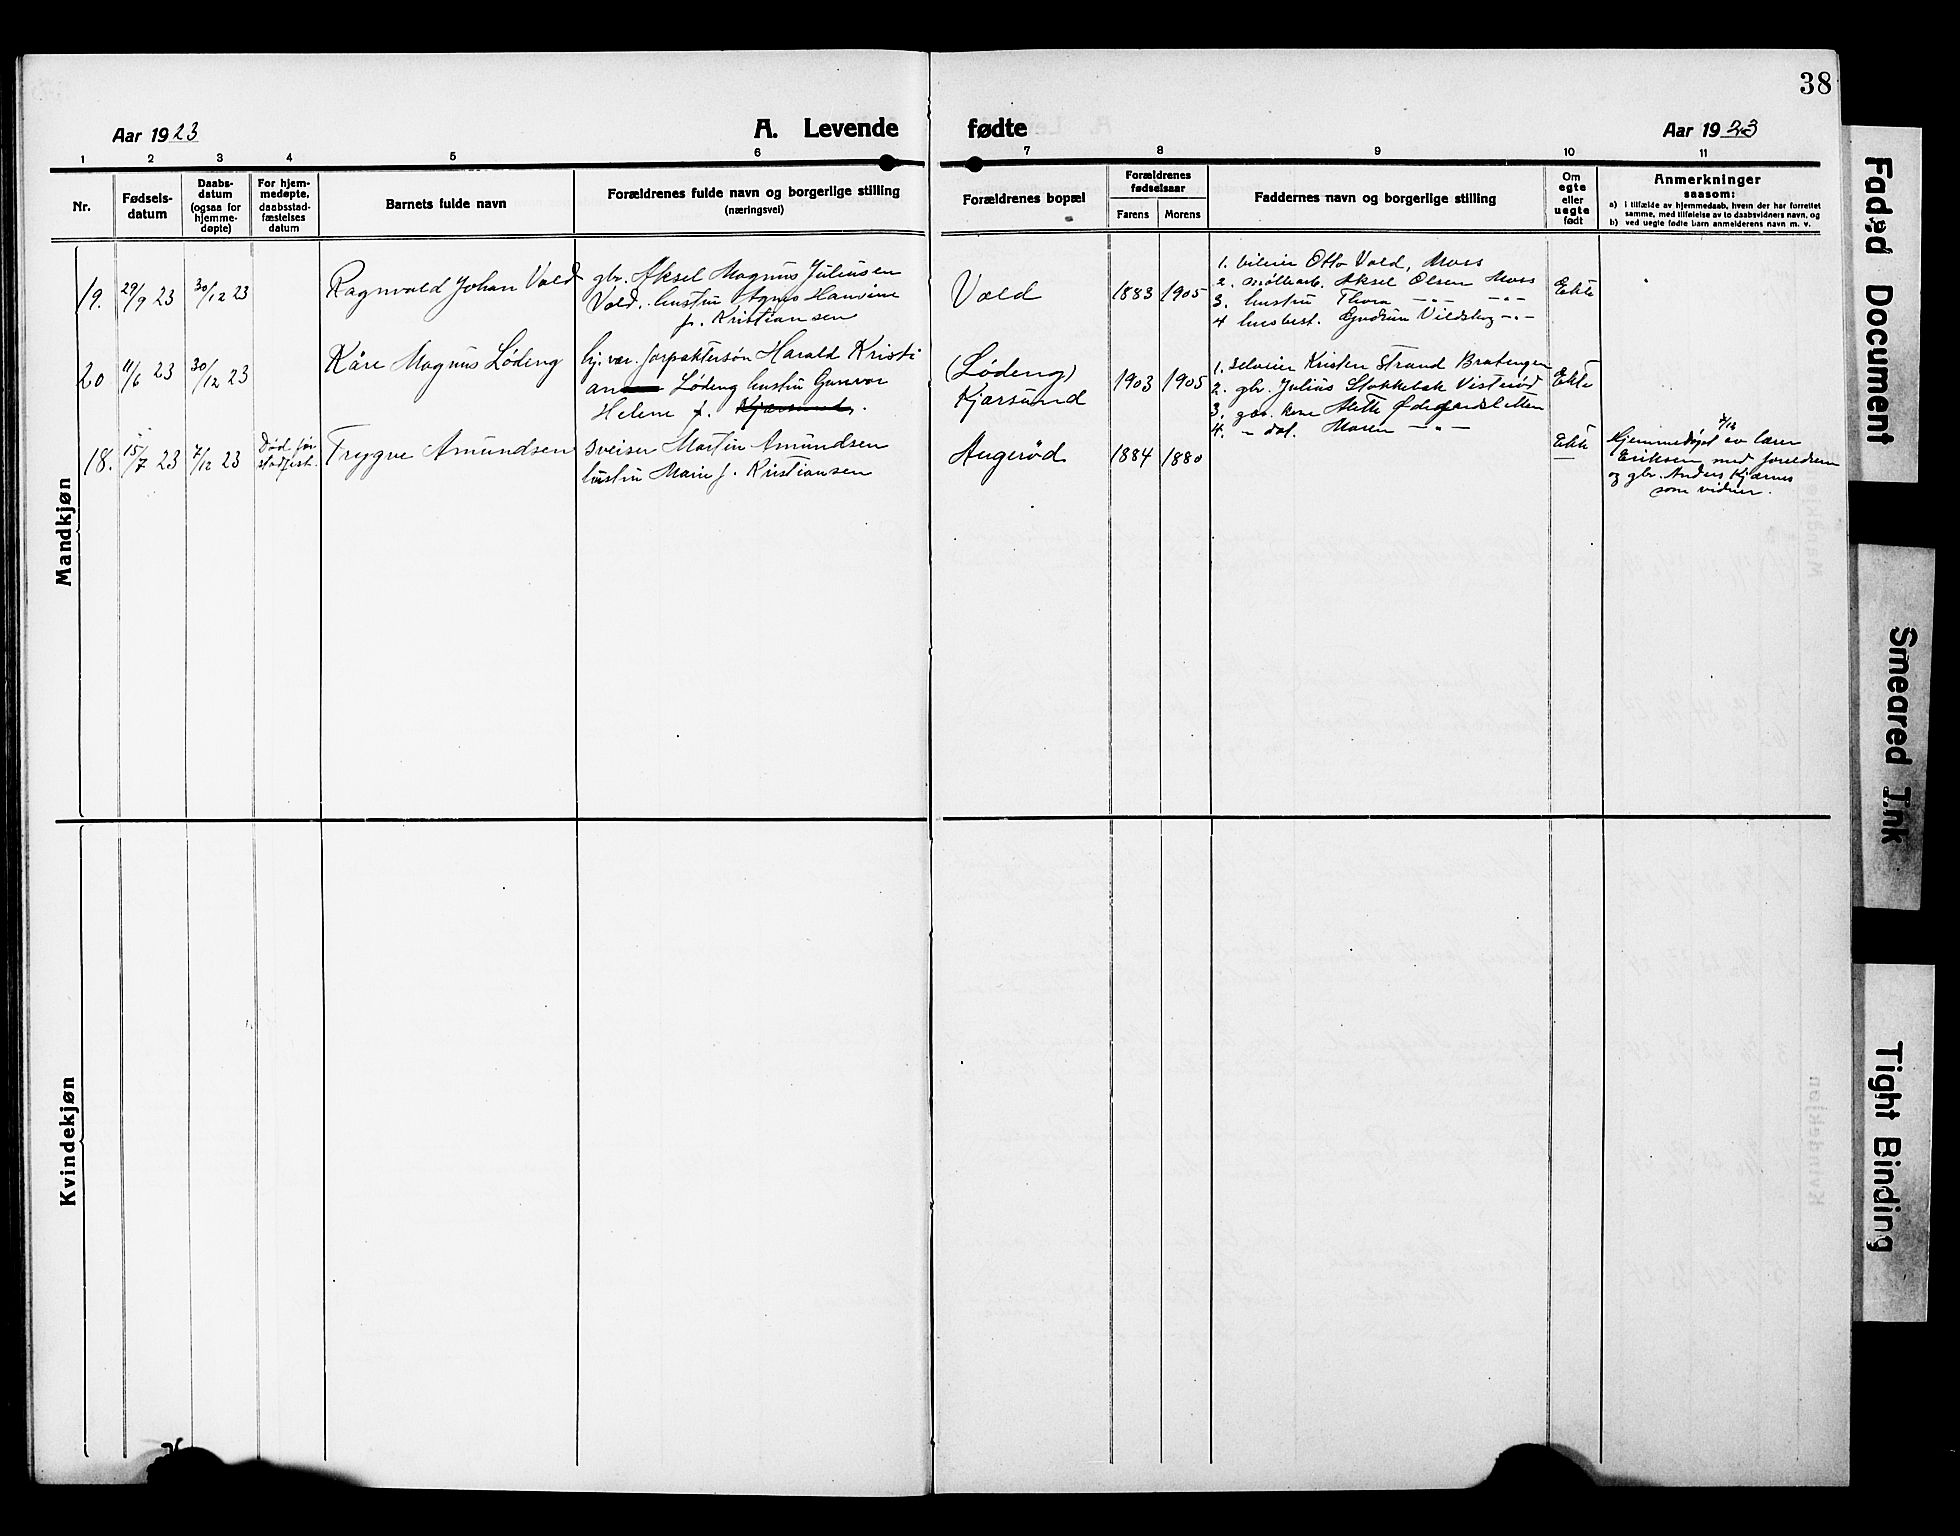 38
Aar 1923
A. Levende fødte
Aar 1923
1 2 3 4 5 6 7 8 9 10 11
Nr.
Fødsels-
datum
Daabs-
datum
(ogsaa for
hjemme-
døpte)
For hjem-
medøpte,
daabsstad-
fæstelses
datum
Barnets fulde navn
Forældrenes fulde navn og borgerlige stilling
(næringsvei)
Forældrenes bopæl
Forældrenes
fødselsaar
Farens Morens
Faddernes navn og borgerlige stilling
Om
egte
eller
uegte
født
Anmerkninger
saasom:
a) i tilfælde av hjemmedaab, hvem der har forrettet
samme, med tilføielse av to daabsvidners navn, og
b) ved uegte fødte barn anmelderens navn m. v.
Mandkjøn
19. 29/9 23 30/12 23
Ragnvald Johan Vold
gbr. Aksel Magnus Juliussen
Vold. hustru Agnes Hansine
f. Kristiansen
Vold
1883 1905
1. Otto Vold, Moss
2. Aksel Olsen Moss
3. hustru Thora -"- -"-
4 Gudrun -"-
Ekte
20 11/6 23 30/12 23
Kåre Magnus Løding
forpaktersøn Harald Kristi
an Løding hustru Gunvor
Helene f. Kjærsund.
(Løding)
Kjærsund
1903 1905
1. selveier Kristen Strand Bratengen
2. gbr. Julius Stokkebæk Visterød
3. kone
4. - dat. Maren -"-
Ekte
18. 15/7 23 7/12 23
Død før
stadfest.
Trygve Amundsen
sveiser Martin Amundsen
hustru Marie f. Kristiansen
Augerød
1884 1880
Ekte
Hjemmedøpt av lærer
Eriksen med foreldrene
og gbr. Anders Kjærnes
som vidner.
Kvindekjøn
Faded Document
Smeared Ink
Tight Binding